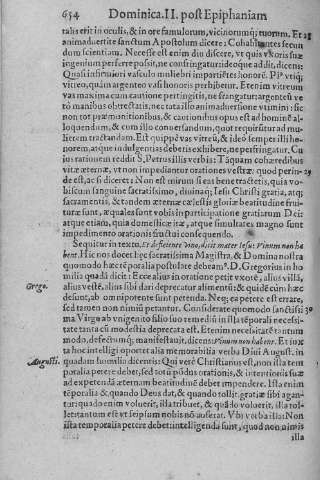 654 Dominica. II. post Epiphaniam
talis erit in oculis, & in ore famulorum, vicinorumq; tuorum. Et 28
animaduertite sanctum Apostolum dicere: Cohabitantes secun
dum scientiam. Necesse est enim diu discere, vt quis vxoris suæ
ingenium perferre possit, ne confringatur: ideoque addit, dicens:
Quasi infirmiori vasculo muliebri impartiētes honorē. Pſ vtiq;
vitreo, quàm argenteo vasi honoris perhibetur. Etenim vitreum
vas maxima cum cautione pertingitis, ne frangatur: argenteū ve
rò manibus obtrectatis, nec tata illo animaduersione vtimini: sic
non tot præmunitionibus, & cautionibus opus est ad hominē al-
loquendum, & cum illo conuersandum, quot requiritur ad mu-
lierem tractandam. Est quippe vas vitreū, & ideò semper illi ho-
norem, atque indulgentias debetis exhibere, ne perfringatur. Cu
ius rationem reddit S. Petrus illis verbis: Tāquam cohæredibus
vitæ æternæ, vt non impediantur orationes vestræ. quod perin- 29
de est, ac si diceret: Non est mirum si eas bene tractetis, quia vo-
biscum sanguine sacratissimo, diuinaq; Iesu Christi gratia, atq;
sacramentis, & tandem æternæ cælestis gloriæ beatitudine frui-
turæ sunt, æquales sunt vobis in participatione gratiarum Dei:
atque etiam, quia domesticæ iræ, atque simultates magno sunt
impedimento orationis fructui consequendo.
Sequitur in textu, Et deficiente vino, dicit mater Iesu: Vinum non ha
bent. Hic nos docet hęc sacratissima Magistra, & Domina nostra
quomodo hæc tēporalia postulare debeam⁹. D. Gregorius in ho
Grego. milia quadā dicit: Ecce alius in oratione petit vxorē, alius villā,
alius vestē, alius sibi dari deprecatur alimentū: & quidē cùm hæc
desunt, ab omnipotente sunt petenda. Neq; ea petere est errare,
sed tamen non nimiū petantur. Considerate quomodo sanctissi 30
ma Virgo ab vnigenito filio suo remediū in illa tēporali necessi-
tate tanta cū modestia deprecata est. Etenim necessitatē tantum
modo, defectumq; manifestauit, dicens: Vinum non habent. Et iux
ta hoc intelligi oportet alia memorabilia verba Diui August. in
Augusti. quadam homilia dicentis: Qui verè Christianus est, non illa tem
poralia petere debet, sed totū pōdus orationis, & intentionis suæ
ad expetendā æternam beatitudinē debet impendere. Ista enim
tēporalia &, quando Deus dat, &, quando tollit, gratiæ sibi agan-
tur: quia do enim voluerit, illa tribuet, & quādo voluerit, illa tol-
let: tantum est vt seipsum nobis nō auferat. Vbi verba illa: Non
ista temporalia petere debet: intelligenda sunt, quod non nimis
illa